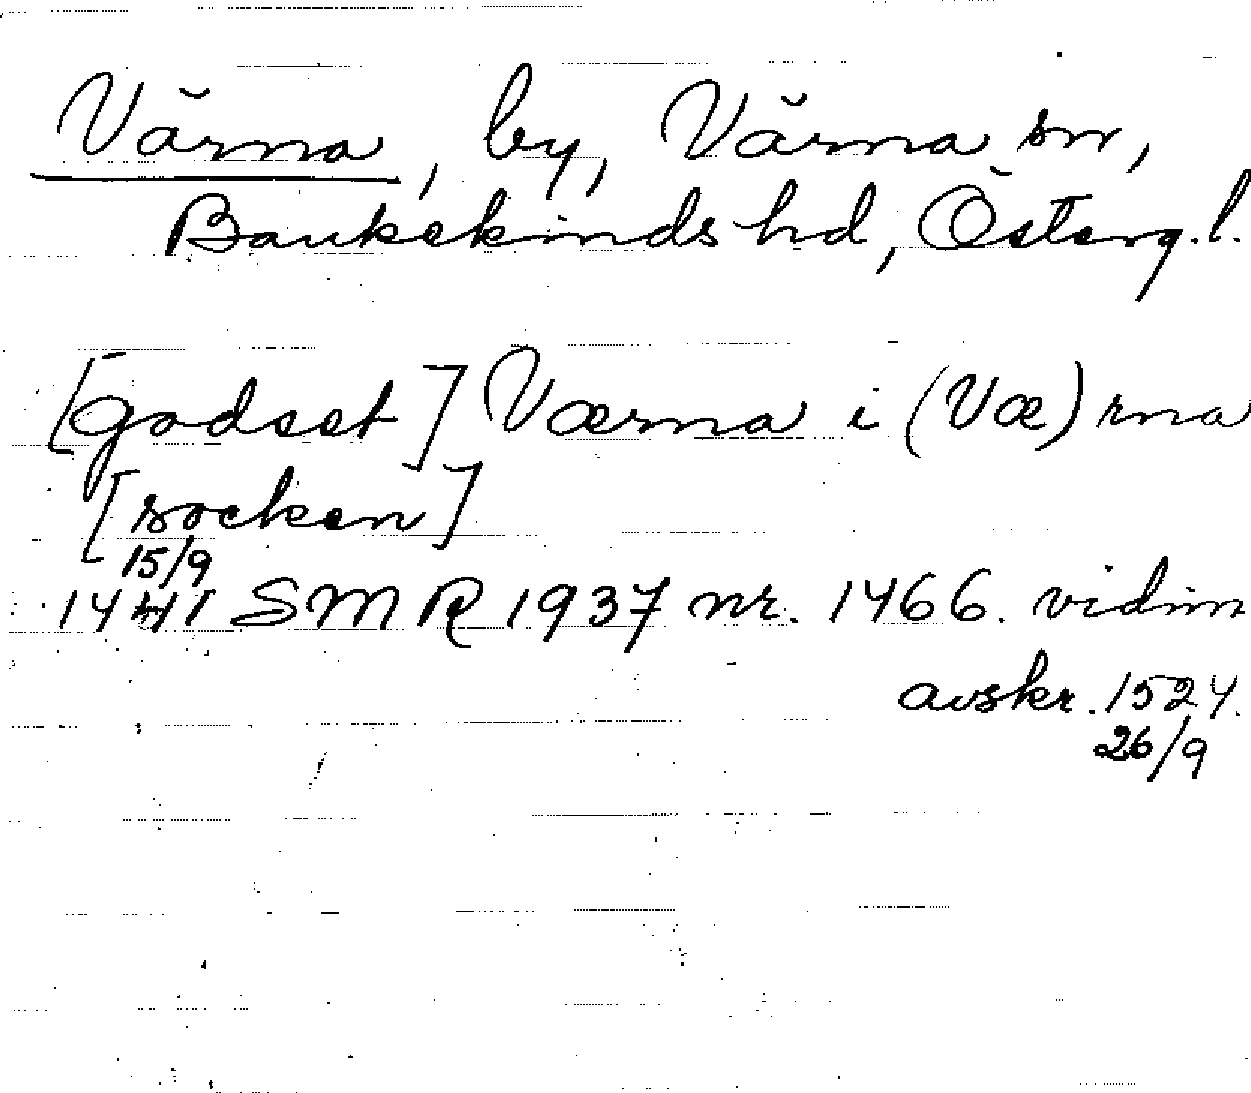 Värna, by, Värna sn,
Bankekinds hd, Österg.l.
[godset] Værna i (Væ)rna
[socken]
15/9
1441 SMR 1937 nr. 1466. vidim
avskr. 1524.
26/9